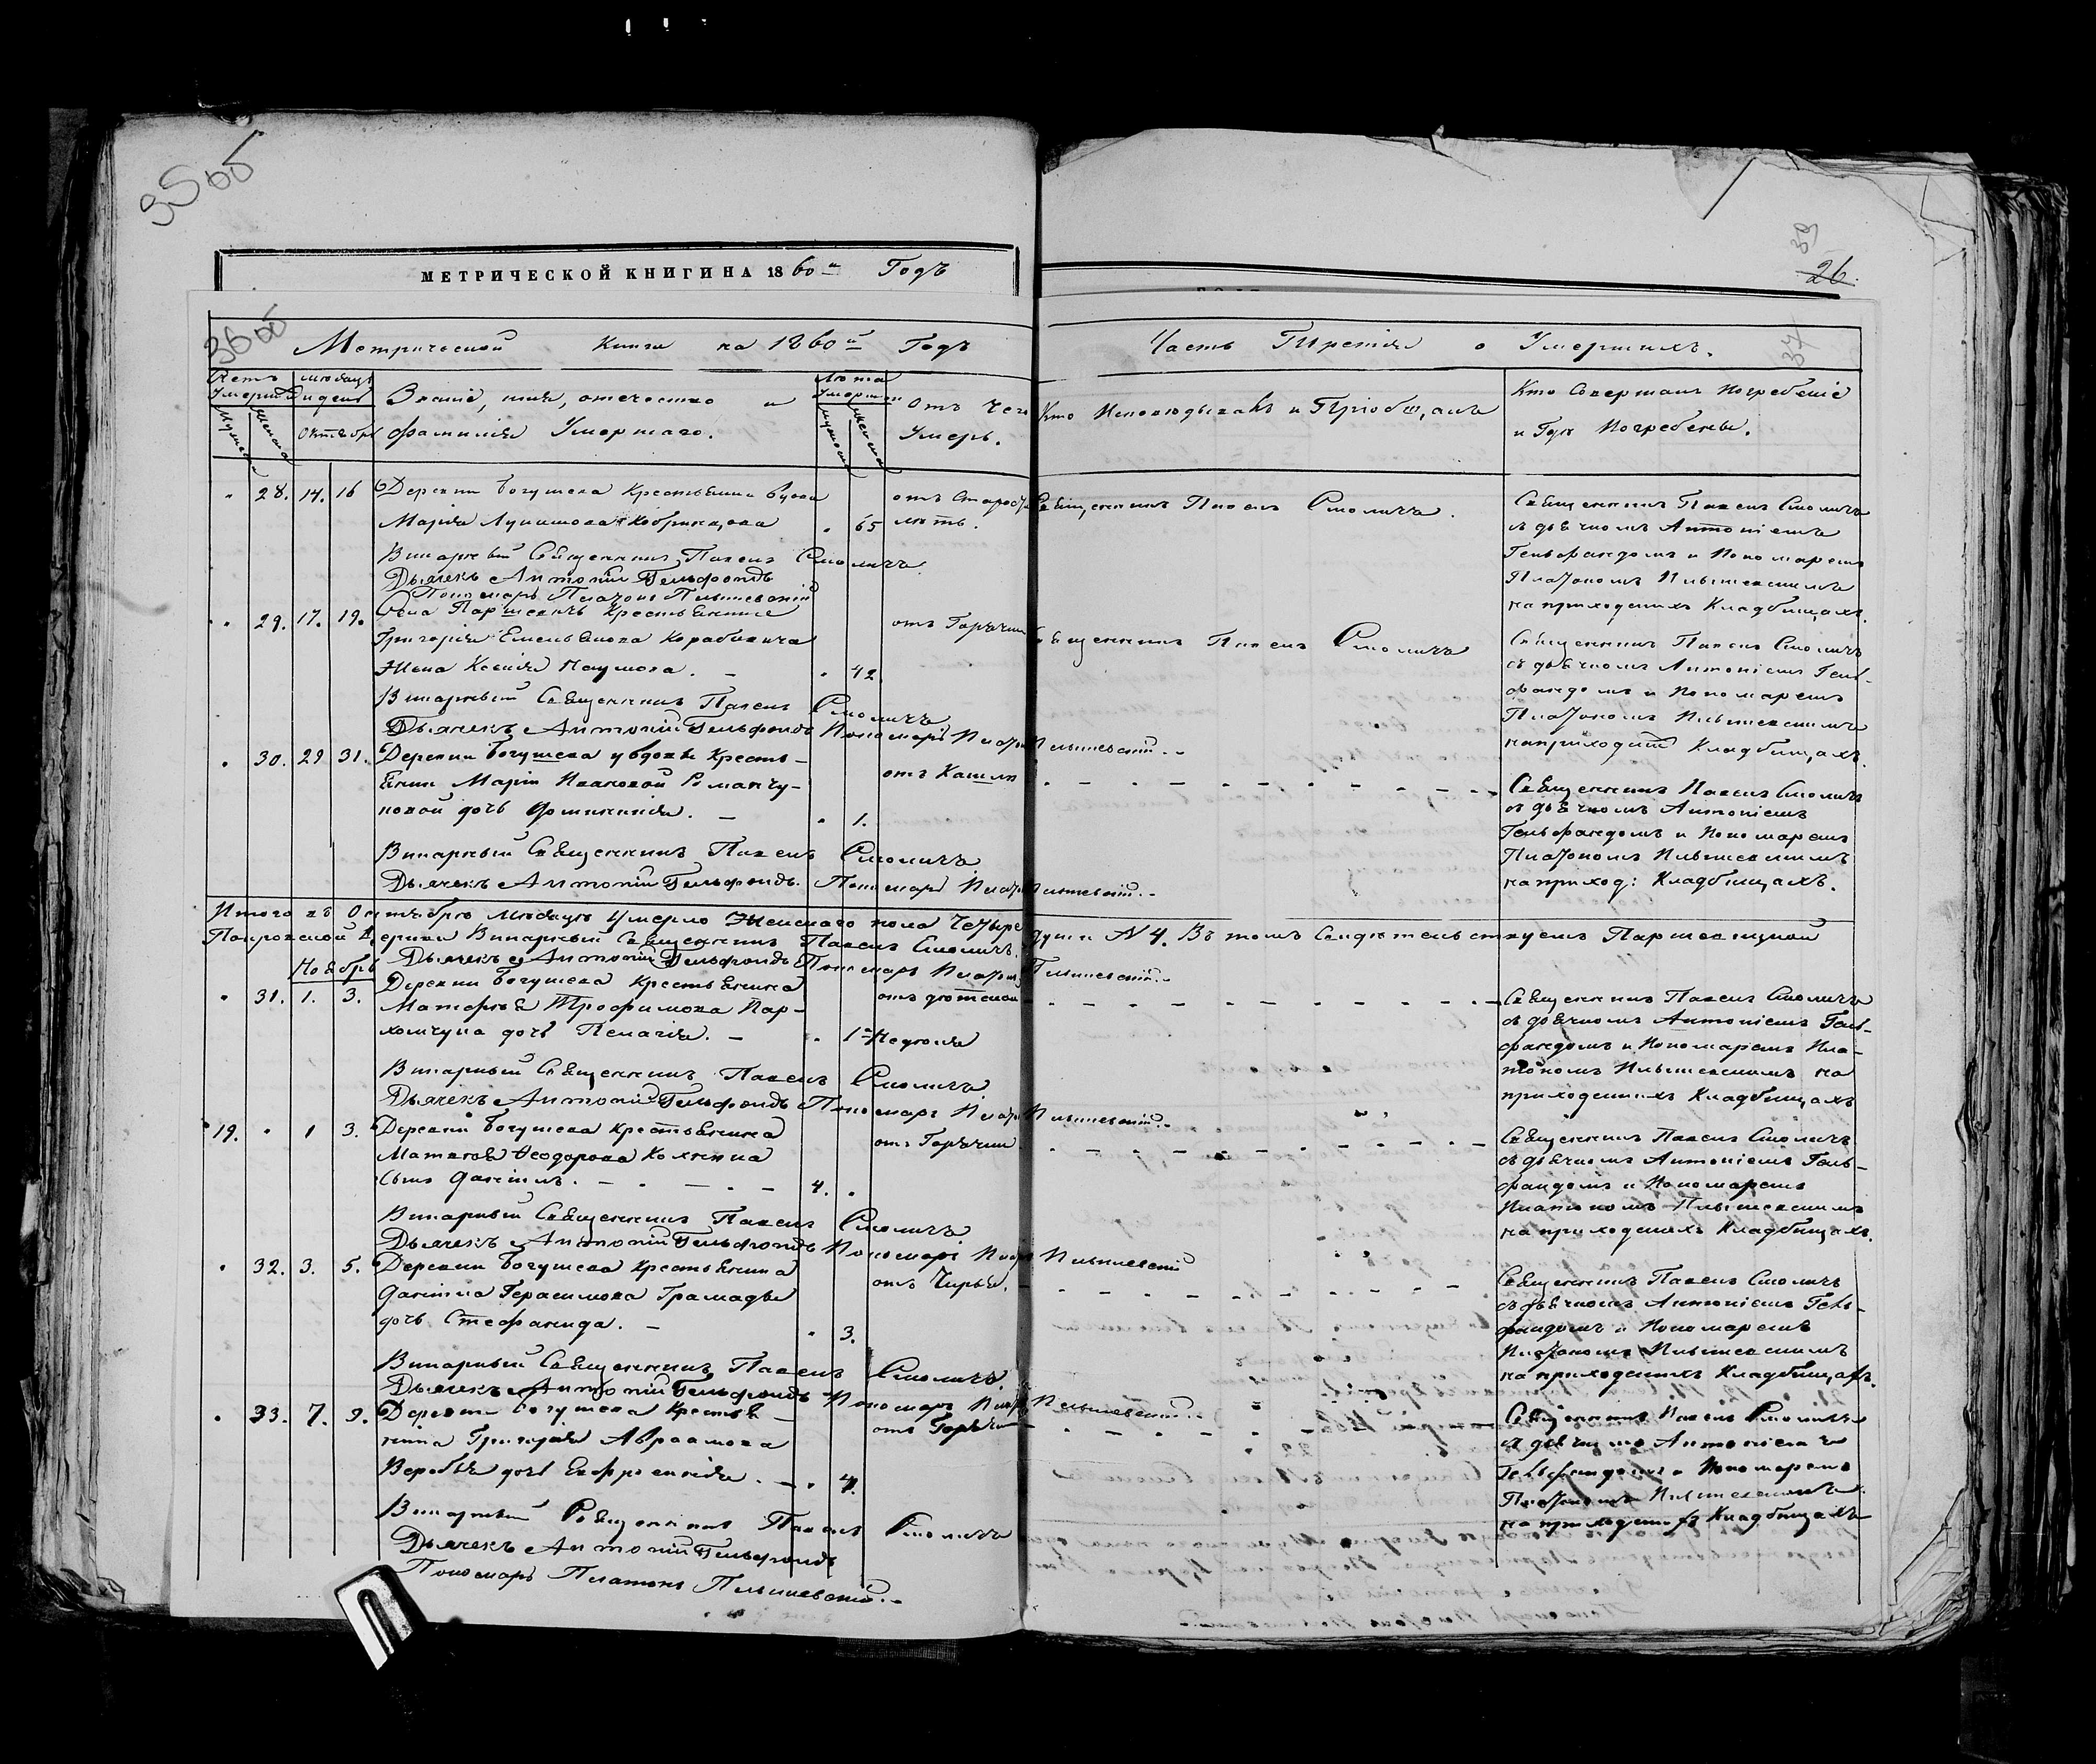 35об
МЕТРИЧЕСКОЙ КНИГИ НА 1860й Годъ
39
26.
36об
37
Метрической Книги на 1860й Годъ
Часть Третія о Умершихъ.
Счетъ Умерш:
Мужеска
Женска
Мѣсяцъ и день
Октябрь
Званіе, имя, отечество и
фамилія Умершаго.
Лѣта Умершаго
Мужеска
Женска
Отъ Чего
Умеръ.
Кто Исповѣдывалъ и Пріобщалъ
Кто Совершалъ Погребеніе
и Гдѣ Погребены.
28. 14. 16 Деревни Богушева Крестьянина вдова
Марія Лукашова Кобринцова 65
отъ Старос
лѣтъ.
Священникъ Павелъ Смоличъ.
Священникъ Павелъ Смоличъ
съ дьячкомъ Антоніемъ
Гельфандомъ и Пономаремъ
Платономъ Пльшевскимъ
на приходскихъ Кладбищахъ.
Викарный Священникъ Павелъ Смоличъ.
Дьячекъ Антоній Гельфондъ
Пономарь Платонъ Пльшевскій
29. 17. 19. Села Паршевичъ Крестьянина
Григорія Емельянова Карабовича
Жена Ксенія Наумова. 42
отъ Горячки
Священникъ Павелъ Смоличъ
Священникъ Павелъ Смоличъ
съ дьячкомъ Антоніемъ Гель-
фандомъ и Пономаремъ
Платономъ Пльшевскимъ
на приходск: Кладбищахъ.
Викарный Священникъ Павелъ Смоличъ
Дьячекъ Антоній Гельфондъ Пономарь Платонъ Пльшевскій.
30. 29 31. Деревни Богушева у вдовы Кресть-
янки Маріи Ивановой Романчу-
ковой дочь Домникія. 1.
отъ Кашля
Священникъ Павелъ Смоличъ
съ дьячкомъ Антоніемъ
Гельфандомъ и Пономаремъ
Платономъ Пльшевскимъ
на приход: Кладбищахъ.
Викарный Священникъ Павелъ Смоличъ
Дьячекъ Антоній Гельфондъ. Пономарь Платонъ Пльшевскій.
Итого въ Октябрѣ Мѣсяцѣ Умерло Женскаго пола Четыре души N 4. Въ томъ Свидѣтельствуемъ Паршевицкой
Покровской Церкви Викарный Священникъ Павелъ Смоличъ.
Дьячекъ Антоній Гельфондъ Пономарь Платонъ Пльшевскій.
Ноябрь
31. 1. 3. Деревни Богушева Крестьянина
Матфея Трофимова Пар-
хомчука дочь Пелагія. 1 Недѣля
отъ дѣтской
Священникъ Павелъ Смоличъ
съ дьячкомъ Антоніемъ Гель-
фандомъ и Пономаремъ Пла-
тономъ Пльшевскимъ на
приходскихъ Кладбищахъ
Викарный Священникъ Павелъ Смоличъ
Дьячекъ Антоній Гельфондъ Пономарь Платонъ Пльшевскій.
19. 1 3. Деревни Богушева Крестьянина
Матвѣя Ѳеодорова
Сынъ Даніилъ. 4.
отъ Горячки
Священникъ Павелъ Смоличъ
съ дьячкомъ Антоніемъ Гель-
фандомъ и Пономаремъ
Платономъ Пльшевскимъ
на приходскихъ Кладбищахъ.
Викарный Священникъ Павелъ Смоличъ
Дьячекъ Антоній Гельфондъ Пономарь Платонъ Пльшевскій
32. 3. 5. Деревни Богушева Крестьянина
Даніила Герасимова Грамадзы
дочь Стефанида. 3.
отъ Чирья.
Священникъ Павелъ Смоличъ
съ дьячкомъ Антоніемъ Гель-
фандомъ и Пономаремъ
Платономъ Пльшевскимъ
на приходскихъ Кладбищахъ.
Викарный Священникъ Павелъ Смоличъ
Дьячекъ Антоній Гельфондъ Пономарь Платонъ Пльшевскій.
33. 7. 9. Деревни Богушева Крестья-
нина Григорія Авраамова
Воробья дочь Евфросинія. 4.
отъ Горячки
Священникъ Павелъ Смоличъ
съ дьячкомъ Антоніемъ
Гельфандомъ и Пономаремъ
Платономъ Пльшевскимъ
на приходскихъ Кладбищахъ
Викарный Священникъ Павелъ Смоличъ
Дьячекъ Антоній Гельфондъ
Пономарь Платонъ Пльшевскій.